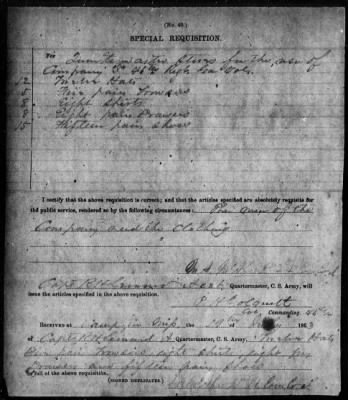 (No. 40.)
SPECIAL REQUISITION.
For Quartermaster stores for the use of
Company 46th Regt Geo Vols.
12 Twelve Hats
5 Five pair Trowsers
8 Eight Shirts
8 Eight pair Drawers
15 Fifteen pair shoes
I certify that the above requisition is correct; and that the articles specified are absolutely requisite for
the public service, rendered so by the following circumstances: The men of the
Company need the clothing
Quartermaster, C. S. Army, will
issue the articles specified in the above requisition.
P. H. Colquitt
Col, Commanding. 46
Received at Camp in Miss, the of 1863
of Capt Quartermaster, C. S. Army, Twelve Hats
Five pair trowsers eight shirts eight pair
Drawers and fifteen pair shoes
in full of the above requisition.
(SIGNED DUPLICATES.)